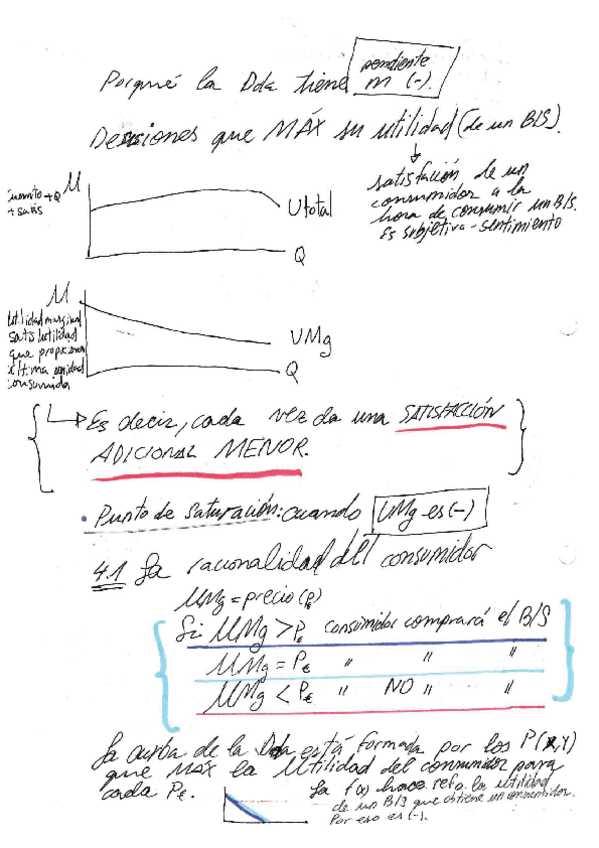 Porqué la Dda tiene pendiente m (-).
Decisiones que MÁX su utilidad (de un B/S).
satisfacción de un
consumidor a la
hora de consumir un B/S.
Es subjetiva - sentimiento
M
+Q
+ satis
Utotal
Q
M
utilidad marginal
satis utilidad
que proporciona
última unidad
consumida
UMg
Q
Es decir, cada vez da una SATISFACCIÓN
ADICIONAL MENOR.
• Punto de saturación: cuando UMg es (-)
4.1 La racionalidad del consumidor
UMg = precio (P€)
Si UMg > P€ consumidor comprará el B/S
UMg = P€ " " "
UMg < P€ " NO " "
La curba de la Dda está formada por los P(X,Y)
que MAX la Utilidad del consumidor para
cada P€.
La f(x) hace refª. la utilidad
de un B/S que obtiene un consumidor.
Por eso es (-).